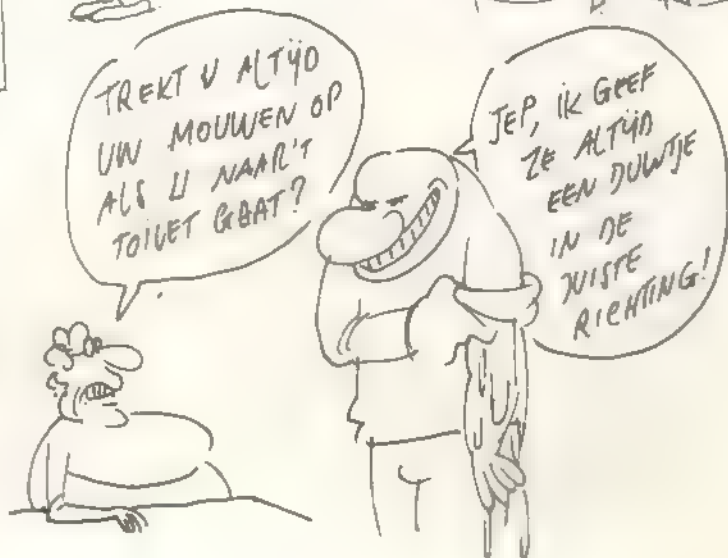 TREKT U ALTIJD
UW MOUWEN OP
ALS U NAAR'T
TOILET GAAT?
JEP, IK GEEF
ZE ALTIJD
EEN DUWTJE
IN DE
JUISTE
RICHTING!